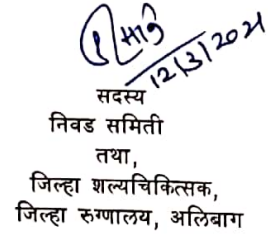 12/3/2021
सदस्य
निवड समिती
तथा,
जिल्हा शल्यचिकित्सक,
जिल्हा रुग्णालय, अलिबाग